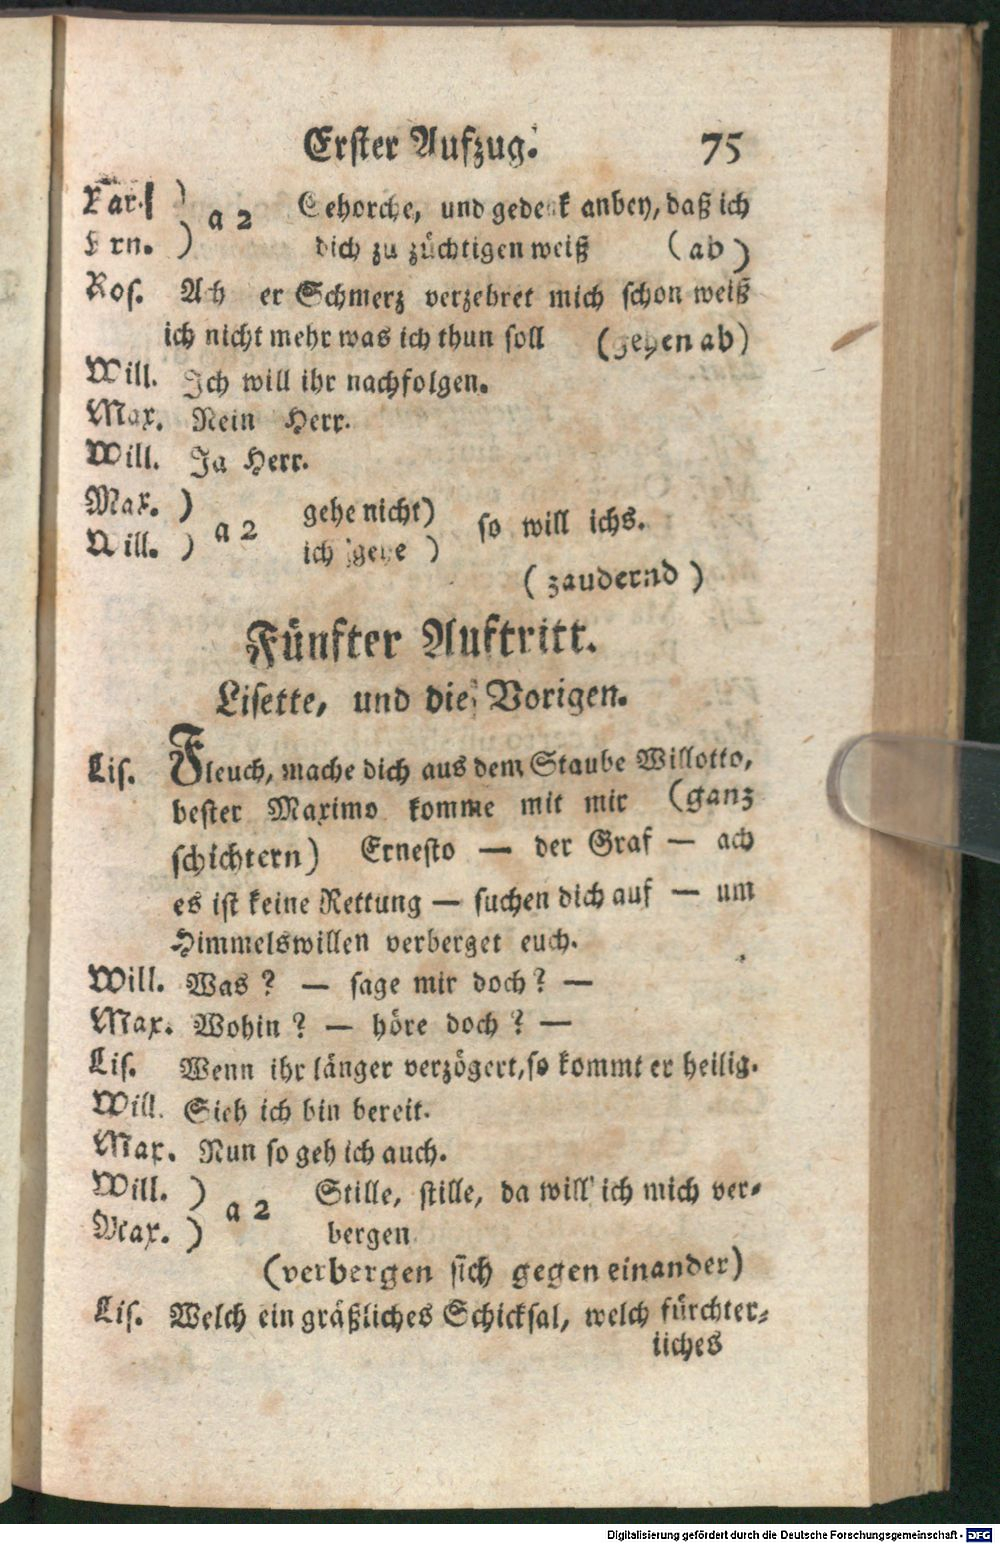 Erster Aufzug. 75
Kar. ) a 2 Gehorche, und gedenk anbey, daß ich
Ern. ) dich zu züchtigen weiß (ab)
Ros. Ach er Schmerz verzehret mich schon weiß
ich nicht mehr was ich thun soll (gehen ab)
Will. Ich will ihr nachfolgen.
Max. Nein Herr.
Will. Ja Herr.
Max. ) a 2 gehe nicht) so will ichs.
Will. ) ich gehe )
(zaudernd)
Fünfter Auftritt.
Lisette, und die Vorigen.
Lis. Fleuch, mache dich aus dem Staube Willotto,
bester Maximo komme mit mir (ganz
schichtern) Ernesto — der Graf — ach
es ist keine Rettung — suchen dich auf — um
Himmelswillen verberget euch.
Will. Was? — sage mir doch? —
Max. Wohin? — höre doch? —
Lis. Wenn ihr länger verzögert, so kommt er heilig.
Will. Sieh ich bin bereit.
Max. Nun so geh ich auch.
Will. ) a 2 Stille, stille, da will ich mich ver-
Max. ) bergen
(verbergen sich gegen einander)
Lis. Welch ein gräßliches Schicksal, welch fürchter-
liches
Digitalisierung gefördert durch die Deutsche Forschungsgemeinschaft - DFG